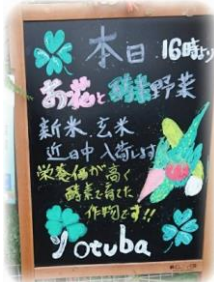 本日 16時より
お花と酵素野菜
新米、玄米
近日中入荷します
栄養価が高く
酵素で育てた
作物です!!
Yotuba